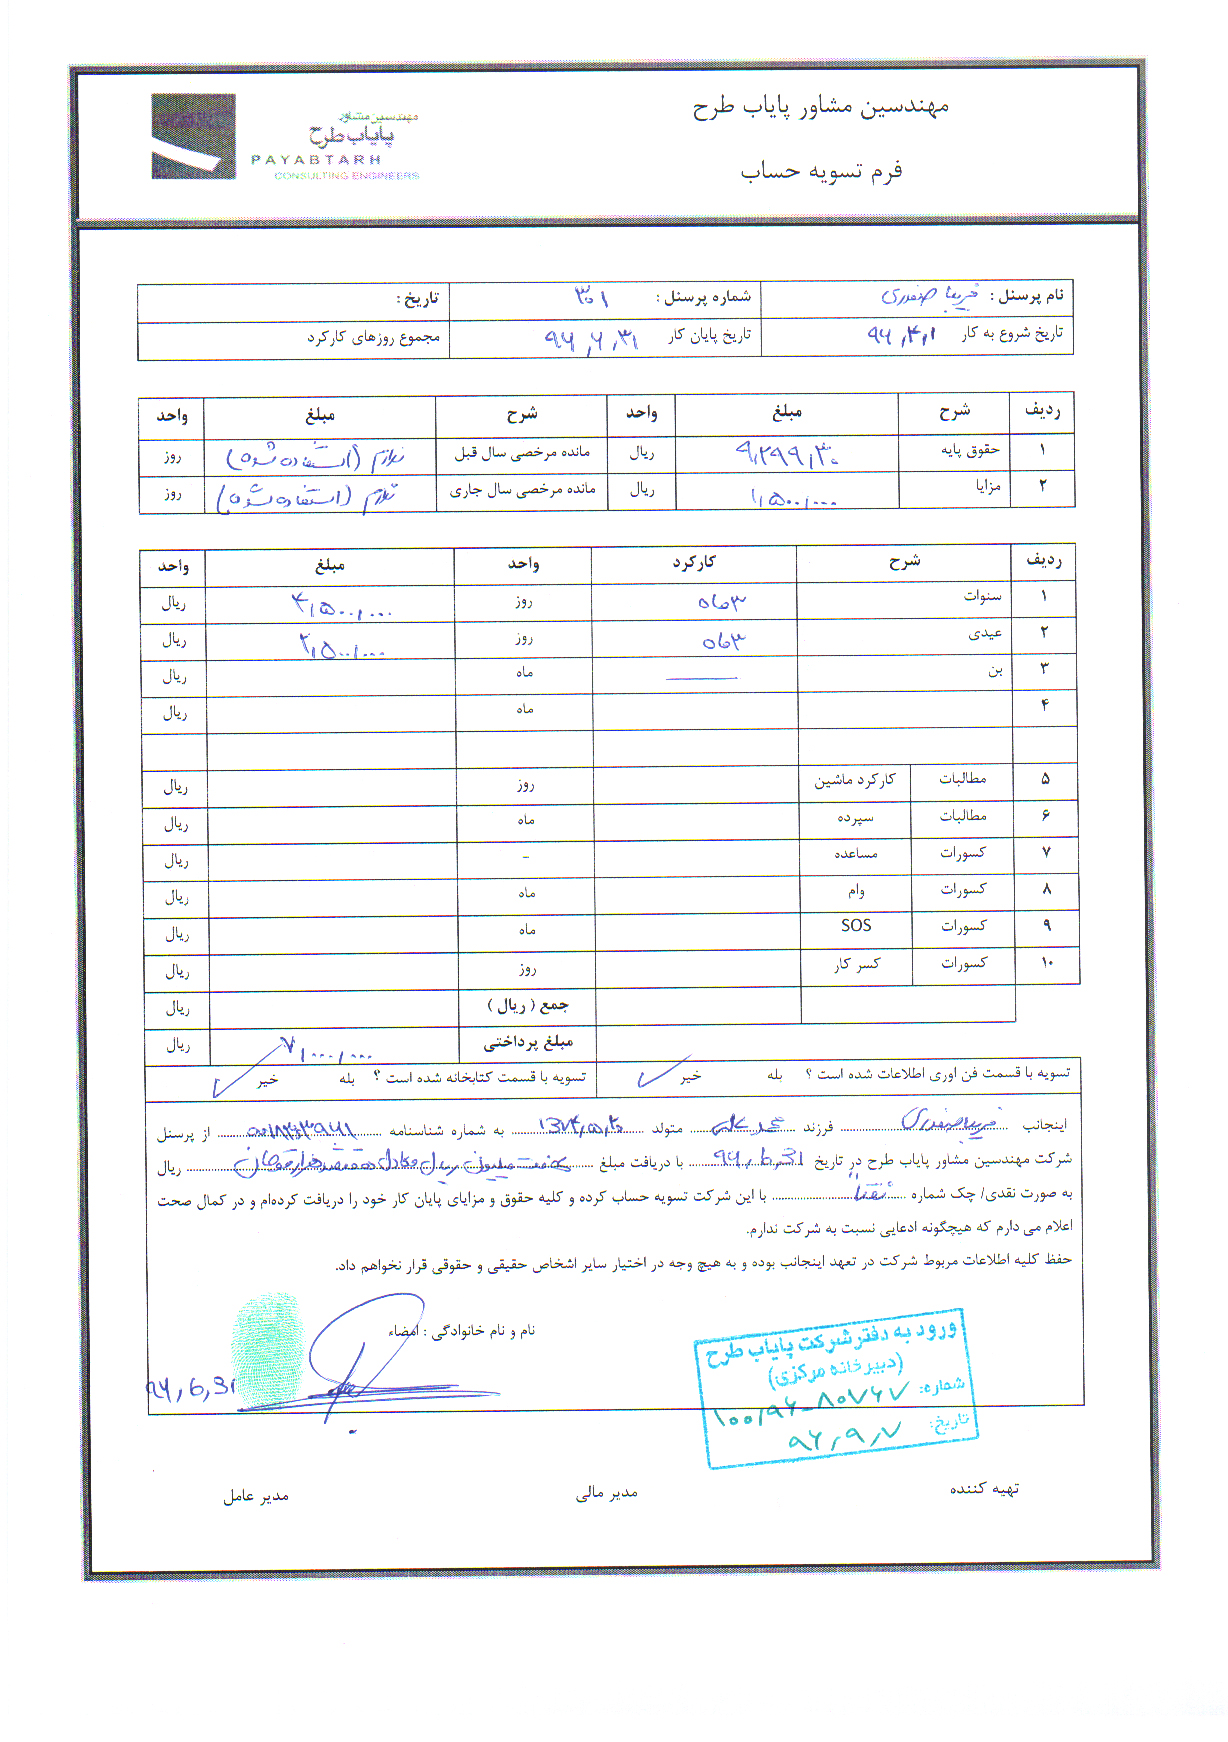 مهندسین مشاور پایاب طرح
فرم تسویه حساب
مهندسین مشاور
پایاب طرح
PAYABTARH
CONSULTING ENGINEERS
نام پرسنل : فریبا صفدری شماره پرسنل : ۳۰۱ تاریخ :
تاریخ شروع به کار ۹۶,۴,۱ تاریخ پایان کار ۹۶,۶,۳۱ مجموع روزهای کارکرد
ردیف شرح مبلغ واحد شرح مبلغ واحد
۱ حقوق پایه ۹,۲۹۹,۳۰ ریال مانده مرخصی سال قبل ندارم (استفاده شده) روز
۲ مزایا ۱,۵۰۰,۰۰۰ ریال مانده مرخصی سال جاری ندارم (استفاده شده) روز
ردیف شرح کارکرد واحد مبلغ واحد
۱ سنوات ۳ماه روز ۴,۵۰۰,۰۰۰ ریال
۲ عیدی ۳ماه روز ۲,۵۰۰,۰۰۰ ریال
۳ بن ماه ریال
۴ ماه ریال
۵ مطالبات کارکرد ماشین روز ریال
۶ مطالبات سپرده ماه ریال
۷ کسورات مساعده – ریال
۸ کسورات وام ماه ریال
۹ کسورات SOS ماه ریال
۱۰ کسورات کسر کار روز ریال
جمع ( ریال ) ریال
مبلغ پرداختی ۷,۰۰۰,۰۰۰ ریال
تسویه با قسمت فن اوری اطلاعات شده است ؟ بله خیر ✓ تسویه با قسمت کتابخانه شده است ؟ بله خیر ✓
اینجانب فریبا صفدری فرزند متولد به شماره شناسنامه از پرسنل
شرکت مهندسین مشاور پایاب طرح در تاریخ ۹۶,6,31 با دریافت مبلغ هفت میلیون ریال معادل هفتصد هزار تومان ریال
به صورت نقدی/ چک شماره نقداً با این شرکت تسویه حساب کرده و کلیه حقوق و مزایای پایان کار خود را دریافت کرده‌ام و در کمال صحت
اعلام می دارم که هیچگونه ادعایی نسبت به شرکت ندارم.
حفظ کلیه اطلاعات مربوط شرکت در تعهد اینجانب بوده و به هیچ وجه در اختیار سایر اشخاص حقیقی و حقوقی قرار نخواهم داد.
نام و نام خانوادگی : امضاء
۹۶,6,31
ورود به دفتر شرکت پایاب طرح
(دبیرخانه مرکزی)
شماره: ۱۰۰/۹۶-۸۰۷۶۷
تاریخ: ۹۶,۹,۷
تهیه کننده مدیر مالی مدیر عامل